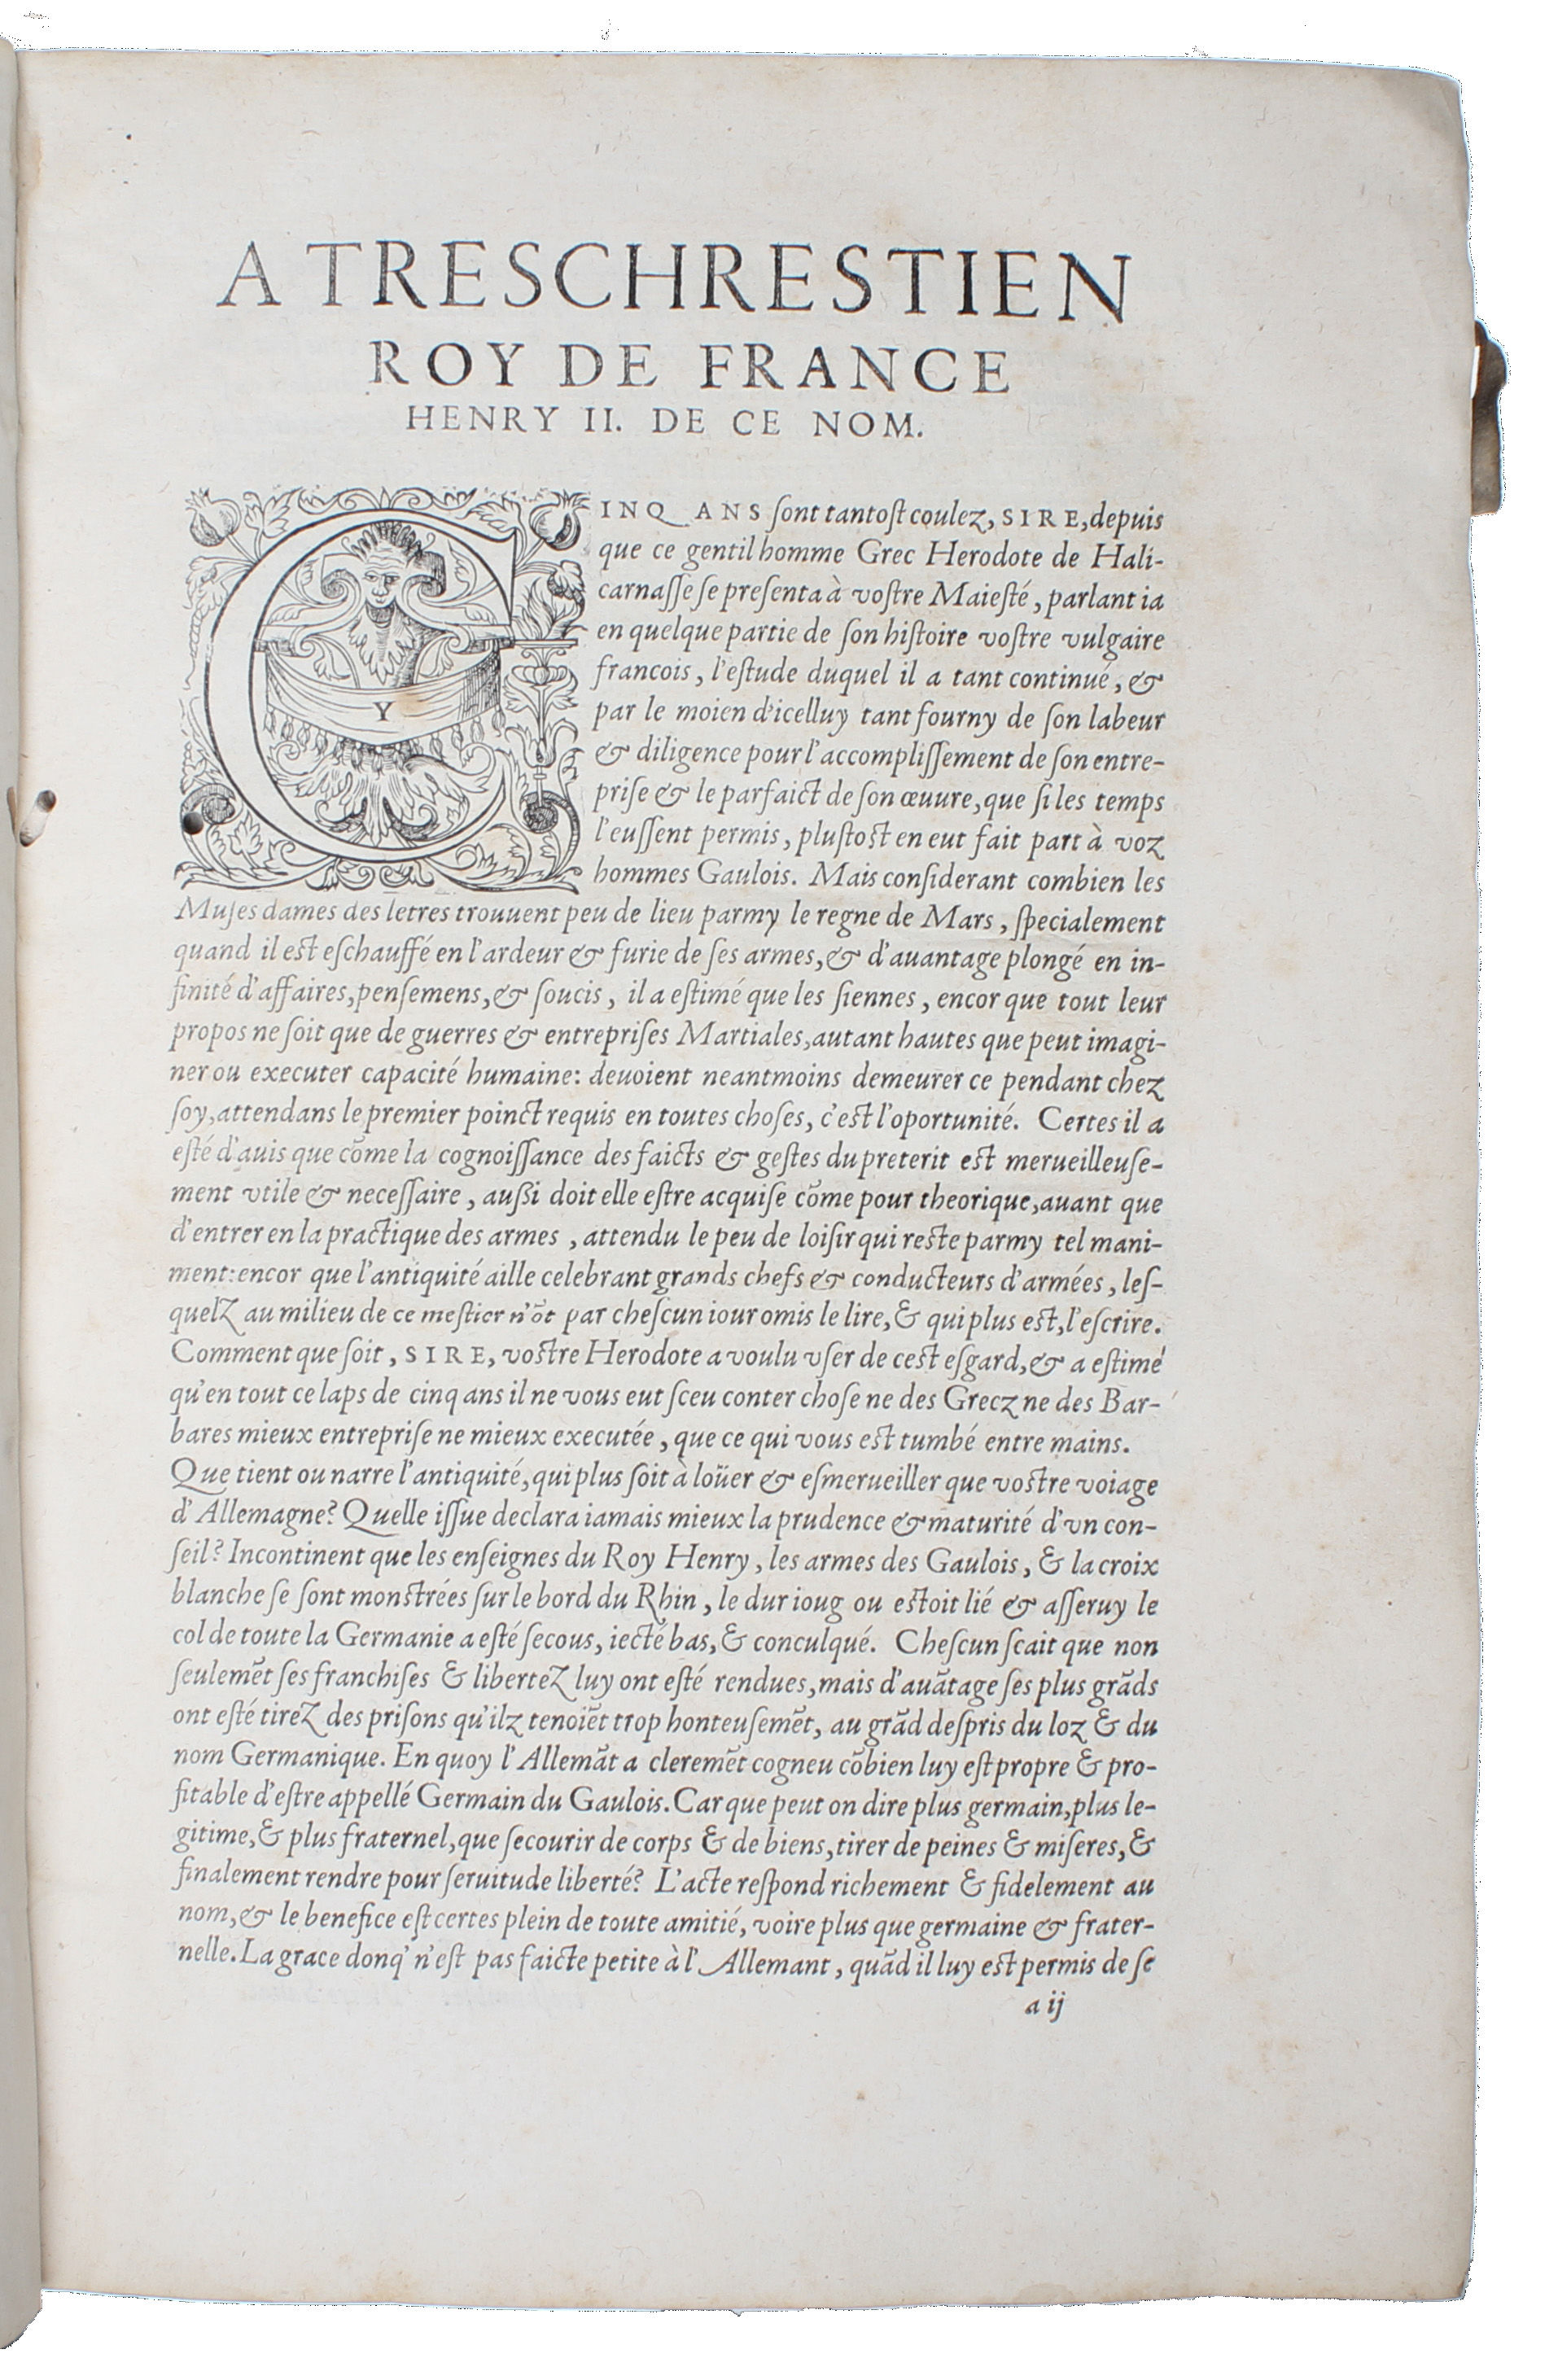 A TRESCHRESTIEN
ROY DE FRANCE
HENRY II. DE CE NOM.
CINQ ANS ſont tantoſt coulez, SIRE, depuis
que ce gentilhomme Grec Herodote de Hali-
carnaſſe ſe preſenta à voſtre Maieſté, parlant ia
en quelque partie de ſon hiſtoire voſtre vulgaire
francois, l'eſtude duquel il a tant continué, &
par le moien d'icelluy tant fourny de ſon labeur
Y
& diligence pour l'accompliſſement de ſon entre-
priſe & le parfaict de ſon œuure, que ſi les temps
l'euſſent permis, pluſtoſt en eut fait part à voz
hommes Gaulois. Mais conſiderant combien les
Muſes dames des letres trouuent peu de lieu parmy le regne de Mars, ſpecialement
quand il eſt eſchauffé en l'ardeur & furie de ſes armes, & d'auantage plongé en in-
finité d'affaires, penſemens, & ſoucis, il a eſtimé que les ſiennes, encor que tout leur
propos ne ſoit que de guerres & entrepriſes Martiales, autant hautes que peut imagi-
ner ou executer capacité humaine: deuoient neantmoins demeurer ce pendant chez
ſoy, attendans le premier poinct requis en toutes choſes, c'eſt l'oportunité. Certes il a
eſté d'auis que cõme la cognoiſſance des faicts & geſtes du preterit eſt merueilleuſe-
ment vtile & neceſſaire, außi doit elle eſtre acquiſe cõme pour theorique, auant que
d'entrer en la practique des armes, attendu le peu de loiſir qui reſte parmy tel mani-
ment: encor que l'antiquité aille celebrant grands chefs & conducteurs d'armées, leſ-
quelz au milieu de ce meſtier n'õt par cheſcun iour omis le lire, & qui plus eſt, l'eſcrire.
Comment que ſoit, SIRE, voſtre Herodote a voulu vſer de ceſt eſgard, & a eſtimé
qu'en tout ce laps de cinq ans il ne vous eut ſceu conter choſe ne des Grecz ne des Bar-
bares mieux entrepriſe ne mieux executée, que ce qui vous eſt tumbé entre mains.
Que tient ou narre l'antiquité, qui plus ſoit à loüer & eſmerueiller que voſtre voiage
d'Allemagne? Quelle iſſue declara iamais mieux la prudence & maturité d'vn con-
ſeil? Incontinent que les enſeignes du Roy Henry, les armes des Gaulois, & la croix
blanche ſe ſont monſtrées ſur le bord du Rhin, le dur ioug ou eſtoit lié & aſſeruy le
col de toute la Germanie a eſté ſecous, iecté bas, & conculqué. Cheſcun ſcait que non
ſeulemẽt ſes franchiſes & libertez luy ont eſté rendues, mais d'auãtage ſes plus grãds
ont eſté tirez des priſons qu'ilz tenoiẽt trop honteuſemẽt, au grãd deſpris du loz & du
nom Germanique. En quoy l'Allemãt a cleremẽt cogneu cõbien luy eſt propre & pro-
fitable d'eſtre appellé Germain du Gaulois. Car que peut on dire plus germain, plus le-
gitime, & plus fraternel, que ſecourir de corps & de biens, tirer de peines & miſeres, &
finalement rendre pour ſeruitude liberté? L'acte reſpond richement & fidelement au
nom, & le benefice eſt certes plein de toute amitié, voire plus que germaine & frater-
nelle. La grace donq' n'eſt pas faicte petite à l'Allemant, quãd il luy eſt permis de ſe
a ij